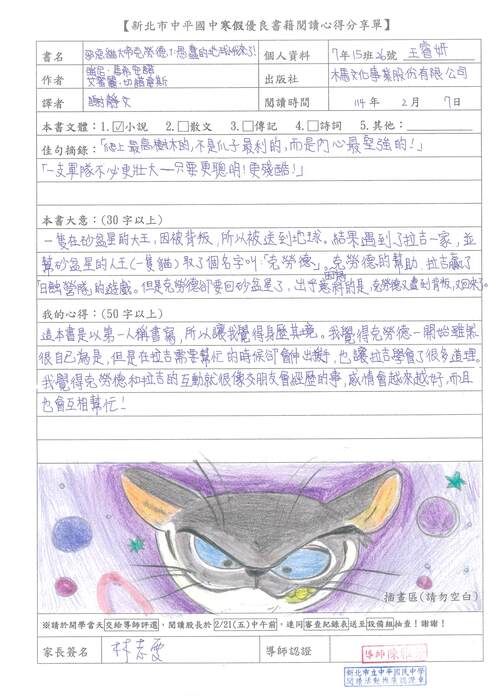 【新北市中平國中寒假優良書籍閱讀心得分享單】
書名 邪惡貓大帝克勞德1:愚蠢的地球我來了!
個人資料 7年15班26號 王睿妍
作者 強尼・馬希安諾
艾蜜麗・切諾韋斯
出版社 木馬文化事業股份有限公司
譯者 謝靜文
閱讀時間 114年2月7日
本書文體:1.☑小說 2.□散文 3.□傳記 4.□詩詞 5.其他:
佳句摘錄:「爬上最高樹木的,不是爪子最利的,而是內心最堅強的!」
「一支軍隊不必更壯大—只要更聰明!更殘酷!」
本書大意:(30字以上)
一隻在砂盆星的大王,因被背叛,所以被送到地球。結果遇到了拉吉一家,並
幫砂盆星的人王(一隻貓)取了個名字叫:「克勞德」。克勞德的幫助,拉吉贏了
日蝕營隊的遊戲。但是克勞德卻要回砂盆星了,出乎意料的是,克勞德又遭到背叛,又回來了。
我的心得:(50字以上)
這本書是以第一人稱書寫,所以讓我覺得身歷其境。我覺得克勞德一開始雖然
很自己為是,但是在拉吉需要幫忙的時候卻會伸出援手,也讓拉吉學會了很多道理。
我覺得克勞德和拉吉的互動就很像交朋友會經歷的事,感情會越來越好,而且
也會互相幫忙!
插畫區(請勿空白)
※請於開學當天交給導師評選,閱讀股長於2/21(五)中午前,連同審查紀錄表送至設備組抽查!謝謝!
家長簽名 林志雯
導師認證 導師陳
新北市立中平國民中學
閱讀活動推展認證章